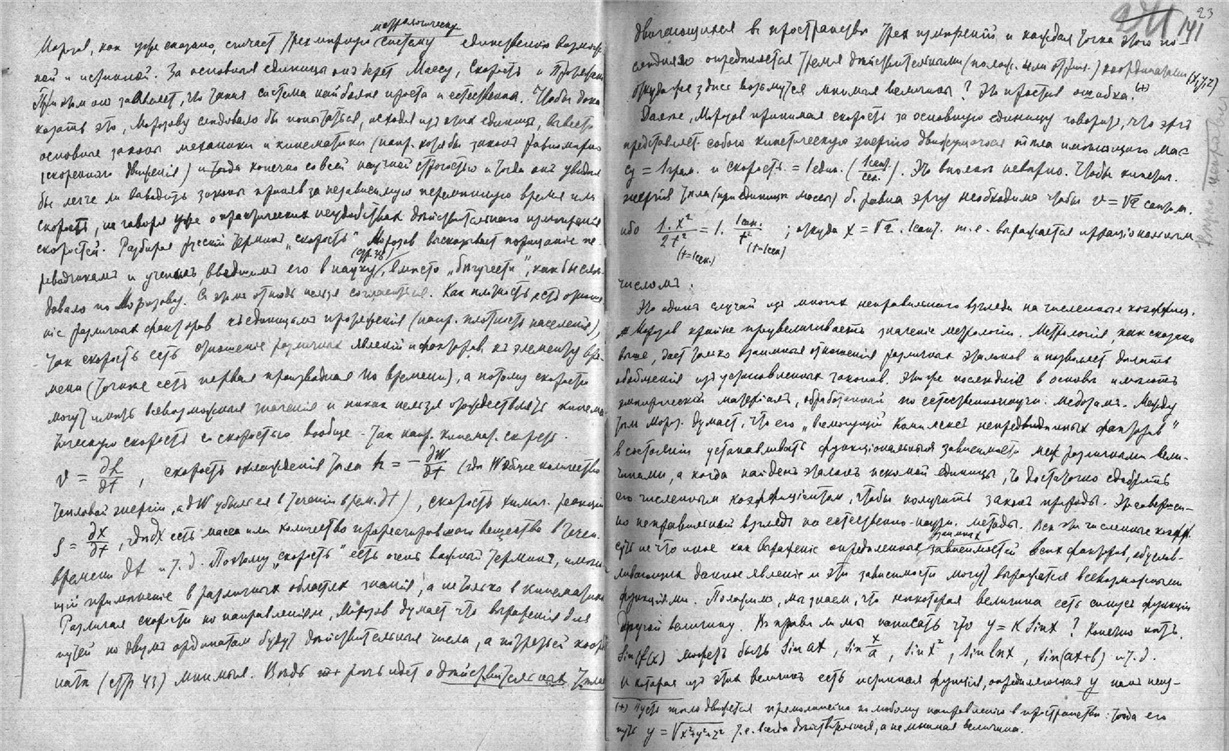 метрологическую
Морозов, как уже сказано, считает трехмерную систему единственно возмож-
ной и истинной. За основныя единицы он берет Массу, Скорость и Протяжен.
При этом он заявляет, что такая система наиболее проста и естественна. Чтобы дока-
казать это, Морозову следовало бы попытаться, исходя из этих единиц, вывести
основные законы механики и кинематики (напр. хотя бы законы равномерно
ускоренного движения) и тогда конечно со всей научной строгостью и тогда он увидел
бы легче ли выводить законы приняв за независимую переменную время или
скорость, не говоря уже о практических неудобствах действительного измерения
скоростей. Разбирая русский термин „скорость" Морозов высказывает порицание пе-
(стр. 38)
реводчикам и ученым вводившим его в науку, вместо „бегучести", как бы сле-
довало по Морозову. С этим отнюдь нельзя согласиться. Как плотность есть отноше-
ние различных факторов к единицам протяжения (напр. плотность населения),
так скорость есть отношение различных явлений и факторов к элементу вре-
мени (точнее есть первая производная по времени), а потому скорости
могут иметь всевозможныя значения и никак нельзя отождествлять кинема-
тическую скорость со скоростью вообще. Так напр. кинемат. скорость
v = dl/dt, скорость охлаждения тела h = − dW/dt (где W общее количество
тепловой энергии, а dW убыль ея в течении врем. dt), скорость химич. реакции
ρ = dx/dt, где dx есть масса или количество прореагировавшего вещества в течен.
времени dt и т.д. Поэтому „скорость" есть очень важный термин, имею-
щий применение в различных областях знания, а не только в кинематике
Различая скорости по направлениям, Морозов думает что выражения для
путей по двум ординатам будут действительныя числа, а по третьей коорд-
ната (стр 43) мнимыя. Ведь тут речь идет о действительных телах
23
141
двигающихся в пространстве трех измерений и каждая точка этого по-
следняго определяется тремя действительными (полож. или отриц.) координатами (x,y,z)
откуда же здесь возьмутся мнимыя величины? Это простая ошибка. (+)
Далее, Морозов принимая скорость за основную единицу говорит, что эрг
представляет собою кинетическую энергию движущегося тела имеющаго мас-
су = 1 грам. и скорость = 1 един. (1 сант./сек.). Это вполне неверно. Чтобы кинетич.
энергия тела (при единице массы) б. равна эргу необходимо чтобы v = √2 сантим.
ибо 1.x²/2t² = 1. 1 сан./t² ; откуда x = √2. 1 сант. т.е. выражается иррациональным
(t=1 сек.) (t=1 сек)
числом.
Это один случай из многих неправильного взгляда на численные коэффиц.
Морозов крайне преувеличивает значение метрологии. Метрология, как сказано
выше, дает только взаимныя отношения различных эталонов и позволяет делать
обобщения из установленных законов. Эти же последние в основе имеют
эмпирический материал, обработанный по естественнонаучн. методам. Между
тем Мороз. думает, что его
в состоянии устанавливать функциональныя зависимости между различными вели-
чинами, а когда найден эталон искомой единицы, то достаточно снабдить
его численным коэффициентом, чтобы получить закон природы. Это соверше-
но неправильный взгляд на естественно-научн. методы. Все эти численные коэфф.
суть не что иное как выражение определенной зависимости всех факторов, обуслов-
ливающих данное явление и эти зависимости могут выражаться всевозможными
функциями. Положим, мы знаем, что некоторая величина есть синус функция
другой величины. Вправе ли мы написать что y = K sin x ? Конечно нет.
sin f(x) может быть sin ax, sin x/a, sin x², sin ln x, sin(ax+b) и т.д.
И которая из этих величин есть истинная функция, определяющая y
(+) Пусть тело движется прямолинейно по любому направлению в пространстве: тогда его
путь y = √x²+y²+z² т.е. всегда действительная, а не мнимая величина.